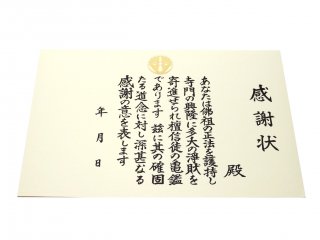 感謝状
殿
あなたは佛祖の正法を護持し
寺門の興隆に多大の浄財を
寄進せられ檀信徒の亀鑑
であります 茲に其の確固
たる道念に対し深甚なる
感謝の意を表します
年 月 日